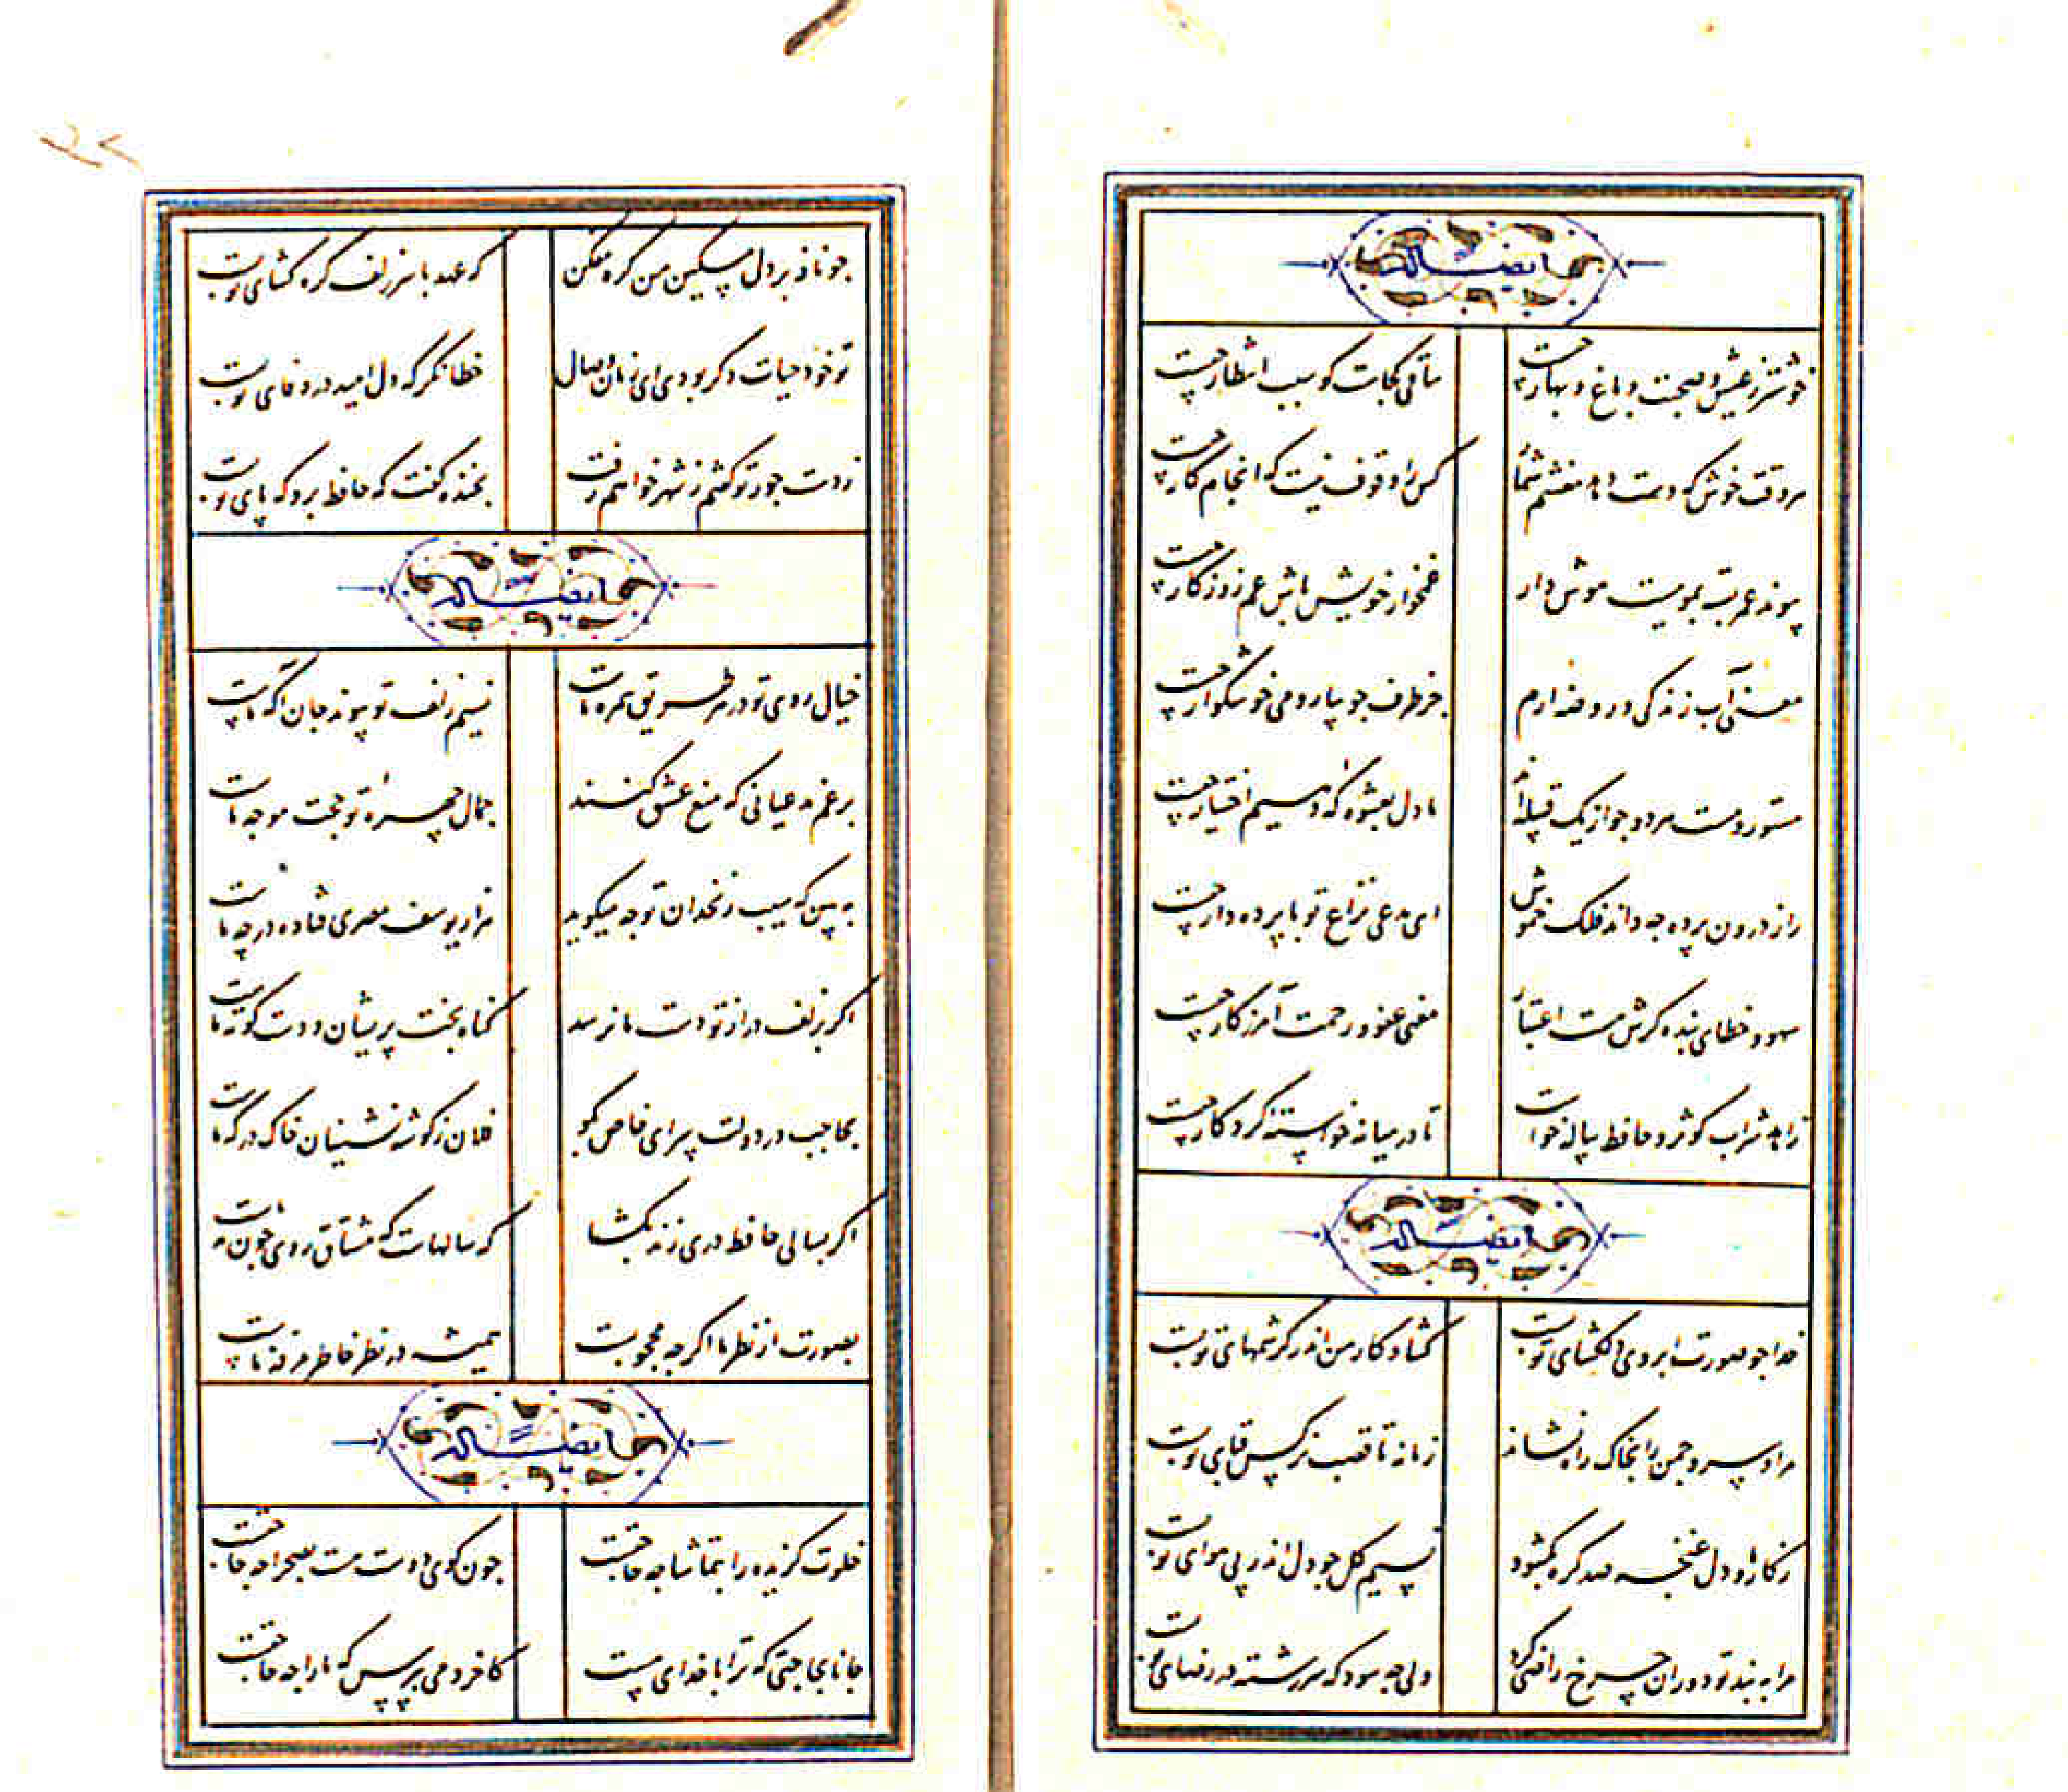 ایضاً له
خوشتر ز عیش و صحبت و باغ و بهار چیست ساقی کجاست کو سبب انتظار چیست
هر وقت خوش که دست دهد مغتنم شمار کس را وقوف نیست که انجام کار چیست
پیوند عمر بسته بموییست هوش دار غمخوار خویش باش غم روزگار چیست
معنی آب زندگی و روضه ارم جز طرف جویبار و می خوشگوار چیست
مستور و مست هر دو چو از یک قبیله‌اند ما دل بعشوه که دهیم اختیار چیست
راز درون پرده چه داند فلک خموش ای مدعی نزاع تو با پرده دار چیست
سهو و خطای بنده گرش هست اعتبار معنی عفو و رحمت آمرزگار چیست
زاهد شراب کوثر و حافظ پیاله خواست تا در میانه خواسته کردگار چیست
ایضاً له
خدا چو صورت ابروی دلگشای تو بست گشاد کار من اندر کرشمهای تو بست
مرا و سرو چمن را بخاک راه نشاند زمانه تا قصب نرگس قبای تو بست
ز کار ما و دل غنچه صد گره بگشود نسیم گل چو دل اندر پی هوای تو بست
مرا به بند تو دوران چرخ راضی کرد ولی چه سود که سررشته در رضای تو بست
چو نافه بر دل مسکین من گره مفکن که عهد با سر زلف گره گشای تو بست
تو خود حیات دگر بودی ای زمان وصال خطا نگر که دل امید در وفای تو بست
ز دست جور تو گفتم ز شهر خواهم رفت بخنده گفت که حافظ برو که پای تو بست
ایضاً له
خیال روی تو در هر طریق همره ماست نسیم زلف تو پیوند جان آگه ماست
برغم مدعیانی که منع عشق کنند جمال چهره تو حجت موجه ماست
به بین که سیب زنخدان تو چه میگوید هزار یوسف مصری فتاده در چه ماست
اگر بزلف دراز تو دست ما نرسد گناه بخت پریشان و دست کوته ماست
بحاجب در دولت سرای خاص بگو فلان ز گوشه نشینان خاک درگه ماست
اگر بسالی حافظ دری زند بگشا که سالهاست که مشتاق روی چون مه ماست
بصورت از نظر ما اگر چه محجوبست همیشه در نظر خاطر مرفه ماست
ایضاً له
خلوت گزیده را بتماشا چه حاجتست چون کوی دوست هست بصحرا چه حاجتست
جانا بحاجتی که ترا با خدای هست کاخر دمی بپرس که ما را چه حاجتست